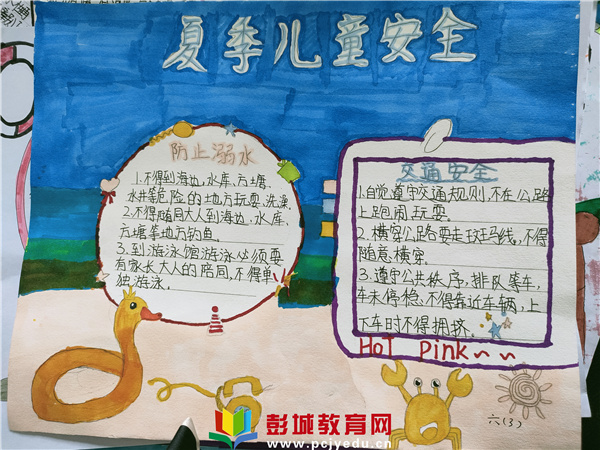 夏季儿童安全
防止溺水
1.不得到海边、水库、方塘、
水井等危险的地方玩耍、洗澡。
2.不得随同大人到海边、水库、
方塘等地方钓鱼。
3.到游泳馆游泳必须要
有家长大人的陪同,不得单
独游泳。
交通安全
1.自觉遵守交通规则,不在公路
上跑闹玩耍。
2.横穿公路要走斑马线,不得
随意横穿。
3.遵守公共秩序,排队等车,
车未停稳,不得靠近车辆,上
下车时不得拥挤。
Hot Pink~~
六(3)
彭城教育网
www.pcjyedu.cn